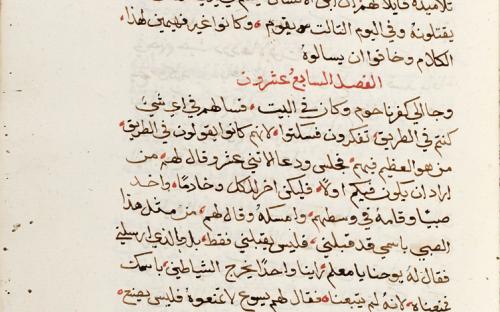 تلاميذه قايلا لهم ان ابن الانسان
يقتلونه وفي اليوم التالت سيقوم وكانوا غير فهمين لهذا
الكلام وخافوا ان يسالوه
الفصل السابع عشرون
وجا الي كفرناحوم وكان في البيت فسالهم في اي شئ
كنتم في الطريق تفكرون فسكتوا لانهم كانوا يقولون في الطريق
من هو العظيم فيهم فجلس ودعا الاثني عشر وقال لهم من
اراد ان يكون فيكم اولا فليكن اخر للكل وخادما واخد
صبيا وقامه في وسطهم وامسكه وقال لهم من متل هذا
الصبي باسمي قد قبلني فليس يقبلني فقط بل والذي ارسلني
فقال له يوحنا يا معلم راينا واحدا يخرج الشياطين باسمك
فمنعناه لانه لم يتبعنا فقال لهم يسوع لا تمنعوه فليس يصنع